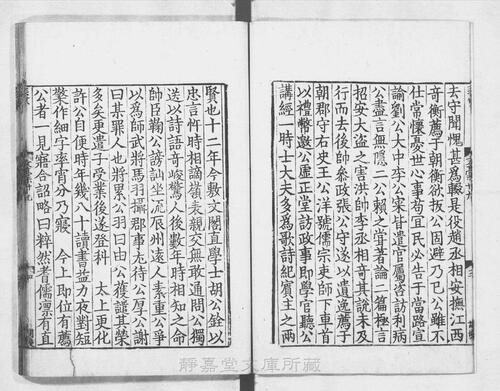 去守聞愧甚爲輟是役趙丞相安撫江西
奇衡薦于朝衡欲扳公固避乃已公雖不
仕常懷憂世心事苟宜民必告于當路宣
諭劉公大中李公寀皆遣官屬咨訪利病
公盡言無隱二公賴之嘗著論二篇極言
招安大盗之害洪帥李丞相奇其説未及
行而去後帥參政張公守遂以遺逸薦于
朝郡守右史王公洋號儒宗吏師下車首
以禮幣邀公廬正堂訪政事即學官聽公
講經一時士大夫多爲歌詩紀實王之兩
賢也十二年今敷文閣直學士胡公銓以
忠言忤時相謫嶺表親交無敢通問公獨
送以詩語奇峻驚人後數年時相知之命
帥臣鞫公謗訕坐流辰州遠人素重公爭
以爲師武將馬羽攝郡事尤待公厚公謝
曰某罪人也將累公羽曰由公獲譴其榮
多矣更遣子受業後遂登科 太上更化
許公自便時年幾八十讀書益力夜對短
檠作細字率宵分乃寢 今上即位有薦
公者一見寤合詔略曰粹然耆儒凛有直
静嘉堂文庫所蔵